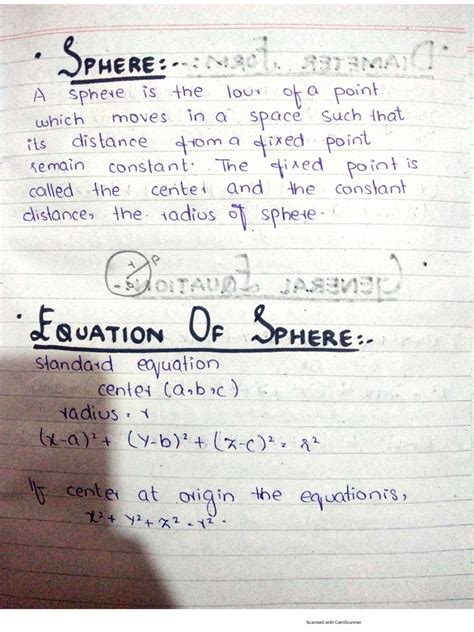 • SPHERE:--
A sphere is the lour of a point
which moves in a space such that
its distance from a fixed point
remain constant. The fixed point is
called the center and the constant
distance, the radius of sphere.
r P
• EQUATION OF SPHERE:-.
standard equation
center (a,b,c)
radius = r
(x-a)² + (y-b)² + (z-c)² = r²
If center at origin the equation is,
x² + y² + z² = r².
Scanned with CamScanner